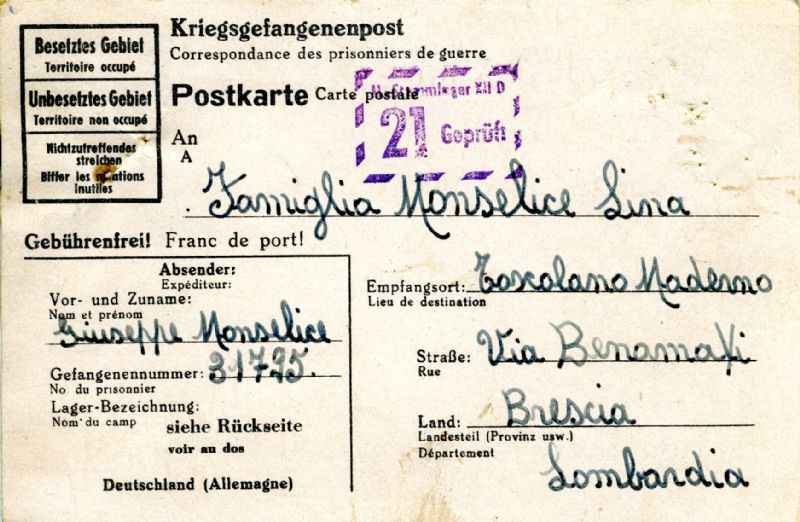 Besetztes Gebiet
Territoire occupé
Unbesetztes Gebiet
Territoire non occupé
Nichtzutreffendes
streichen
Biffer les mentions
inutiles
Kriegsgefangenenpost
Correspondance des prisonniers de guerre
Postkarte Carte postale
M.-Stammlager XII D
21 Geprüft
An
A
Famiglia Monselice Lina
Gebührenfrei! Franc de port!
Absender:
Expéditeur:
Vor- und Zuname:
Nom et prénom
Giuseppe Monselice
Gefangenennummer: 31725.
No. du prisonnier
Lager-Bezeichnung:
Nom du camp
siehe Rückseite
voir au dos
Deutschland (Allemagne)
Empfangsort: Toscolano Maderno
Lieu de destination
Straße: Via Benamati
Rue
Land: Brescia
Landesteil (Provinz usw.)
Département
Lombardia